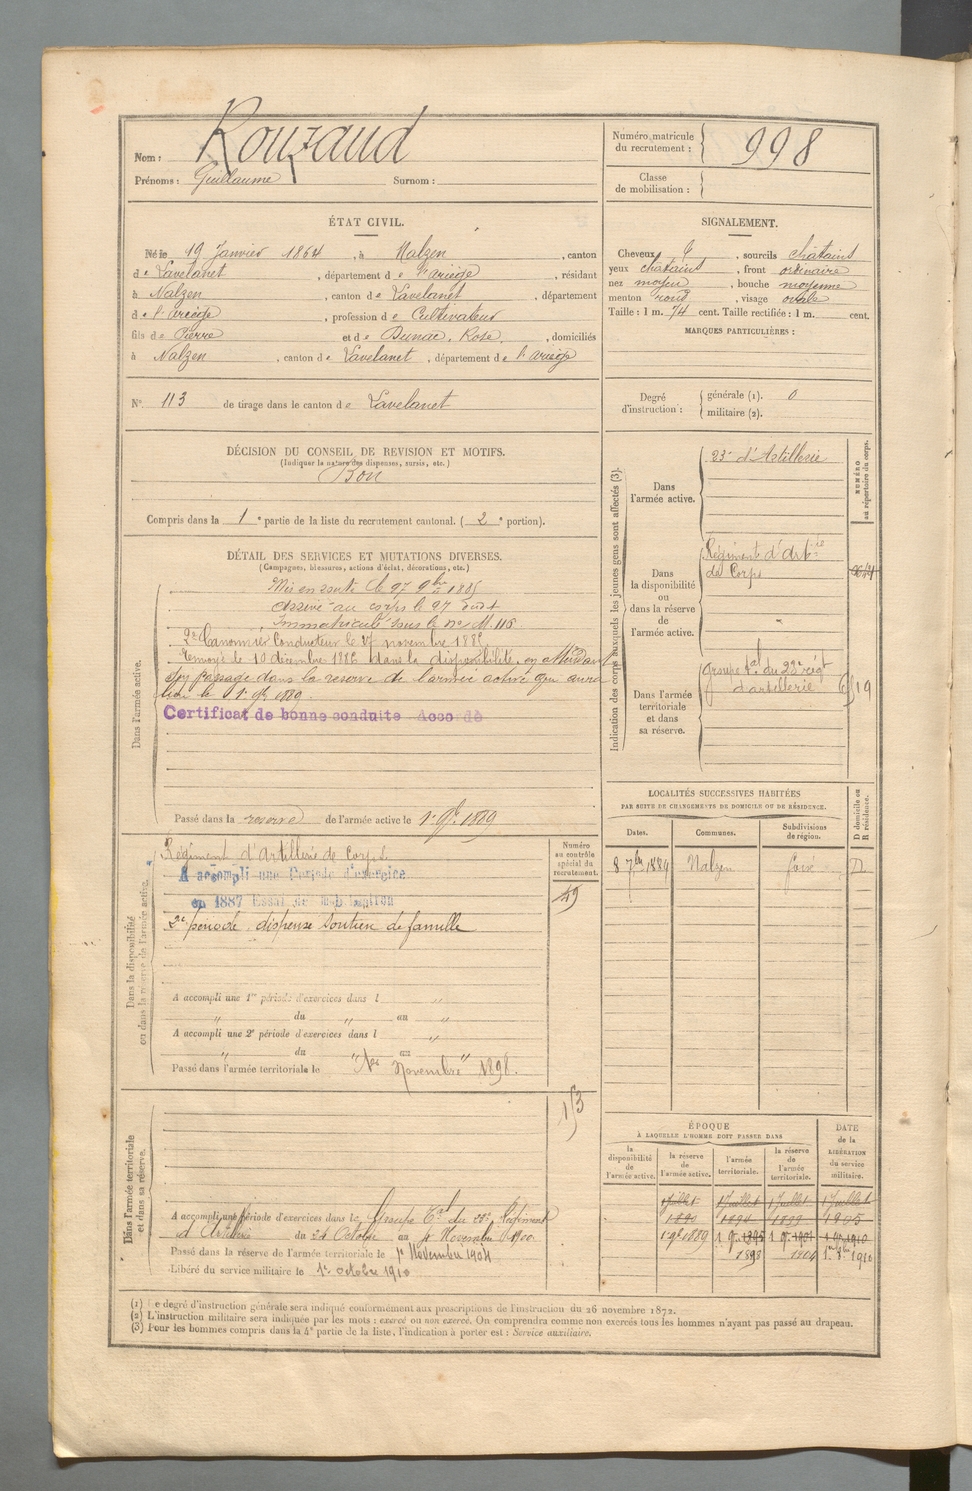 Nom : Rouzaud
Prénoms : Guillaume Surnom :
Numéro matricule du recrutement : 998
Classe de mobilisation :
ÉTAT CIVIL.
Né le 19 Janvier 1864, à Nalzen, canton
de Lavelanet, département de l'ariège, résidant
à Nalzen, canton de Lavelanet, département
de l'ariège, profession de Cultivateur
fils de Pierre et de Dunac, Rose, domiciliés
à Nalzen, canton de Lavelanet, département de l'ariège
N° 113 de tirage dans le canton de Lavelanet
SIGNALEMENT.
Cheveux, sourcils châtains
yeux châtains, front ordinaire
nez moyen, bouche moyenne
menton rond, visage ovale
Taille : 1 m. 74 cent. Taille rectifiée : 1 m. cent.
MARQUES PARTICULIÈRES :
Degré d'instruction : générale (1). 0
militaire (2).
DÉCISION DU CONSEIL DE REVISION ET MOTIFS.
(Indiquer la nature des dispenses, sursis, etc.)
Bon
Compris dans la 1e partie de la liste du recrutement cantonal. (2e portion).
DÉTAIL DES SERVICES ET MUTATIONS DIVERSES.
(Campagnes, blessures, actions d'éclat, décorations, etc.)
Dans l'armée active.
Mis en route le 27 9bre 1885
arrivé au corps le 27 dudit
Immatriculé sous le no M. 116
2e Canonnier Conducteur le 27 novembre 1885
Renvoyé le 10 décembre 1886 dans la disponibilité, en attendant
son passage dans la reserve de l'armée active qui aura
lieu le 1er 9bre 1889
Certificat de bonne conduite Accordé
Passé dans la reserve de l'armée active le 1er 9bre 1889
Indication des corps auxquels les jeunes gens sont affectés (3).
NUMÉRO au répertoire du corps.
Dans l'armée active.
23e d'Artillerie
Dans la disponibilité ou dans la réserve de l'armée active.
Régiment d'artie
de Corps
Dans l'armée territoriale et dans sa réserve.
Groupe tal du 23e régt
d'artillerie 619
LOCALITÉS SUCCESSIVES HABITÉES
PAR SUITE DE CHANGEMENTS DE DOMICILE OU DE RÉSIDENCE.
Dates. Communes. Subdivisions de région. D domicile ou R résidence.
8 7bre 1889 Nalzen foix D
Dans la disponibilité ou dans la réserve de l'armée active.
Numéro au contrôle spécial du recrutement.
Régiment d'Artillerie de Corps.
A accompli une Période d'exercice
en 1887 Essai de mobilisation
49
2e période, dispensé soutien de famille
A accompli une 1re période d'exercices dans l "
" du " au "
A accompli une 2e période d'exercices dans l "
" du " au "
Passé dans l'armée territoriale le 1er Novembre 1898.
Dans l'armée territoriale et dans sa réserve.
A accompli une période d'exercices dans le Groupe Tal du 23e Régiment
d'Artillerie du 24 Octobre au 4 Novembre 1900
Passé dans la réserve de l'armée territoriale le 1er Novembre 1904
Libéré du service militaire le 1er octobre 1910
ÉPOQUE
À LAQUELLE L'HOMME DOIT PASSER DANS
la disponibilité de l'armée active. la réserve de l'armée active. l'armée territoriale. la réserve de l'armée territoriale. DATE de la LIBÉRATION du service militaire.
1 juillet 1 juillet 1 juillet 1 juillet
1890 1894 1899 1905
1898 1904 1910
(1) Le degré d'instruction générale sera indiqué conformément aux prescriptions de l'instruction du 26 novembre 1872.
(2) L'instruction militaire sera indiquée par les mots : exercé ou non exercé. On comprendra comme non exercés tous les hommes n'ayant pas passé au drapeau.
(3) Pour les hommes compris dans la 4e partie de la liste, l'indication à porter est : Service auxiliaire.